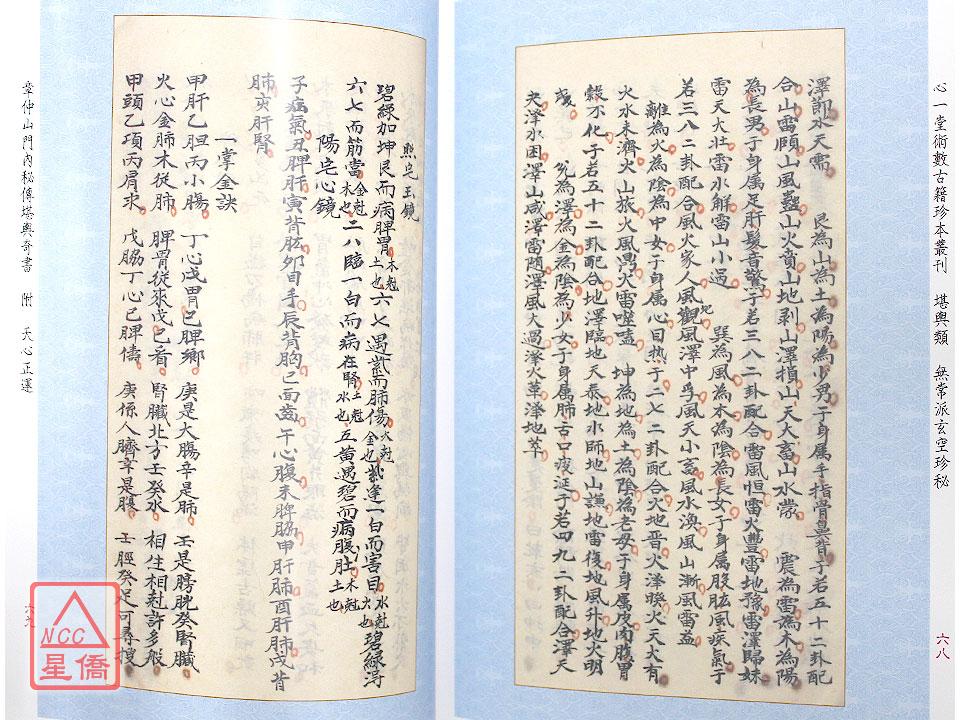 心一堂術數古籍珍本叢刊　堪輿類　無常派玄空珍秘
六八
澤節水天需　艮為山為土為陽為少男于身属手指骨鼻背于若五十二卦配
合山雷頤山風蠱山火賁山地剥山澤損山天大畜山水蒙　震為雷為木為陽
為長男于身属足肝髮音驚于若三八二卦配合雷風恒雷火豐雷地豫雷澤歸妹
雷天大壯雷水解雷山小過　巽為風為木為陰為長女于身属股肱風疾氣于
若三八二卦配合風火家人風地觀風澤中孚風天小畜風水渙風山漸風雷益
離為火為陰為中女于身属心目热于二七二卦配合火地晋火澤睽火天大有
火水未濟火山旅火風鼎火雷噬嗑　坤為地為土為陰為老母于身属皮肉腹胃
穀不化于若五十二卦配合地澤臨地天泰地水師地山謙地雷復地風升地火明
夷　兊為澤為金為陰為少女于身属肺舌口痰涎于若四九二卦配合澤天
夬澤水困澤山咸澤雷随澤風大過澤火革澤地萃
照宅玉鏡
碧綠加坤艮而病脾胃木尅土也六七遇紫而肺傷火尅金也紫逢一白而害目水尅火也碧綠淂
六七而筋當金尅木也二八臨一白而病在腎土尅水也五黄遇碧而病腹肚木尅土也
陽宅心鏡
子病氣丑脾肝寅背肱夘目手辰背胸巳面齒午心腹未脾脇申肝肺酉肝肺戌背
肺亥肝腎
一掌金訣
甲肝乙胆丙小腸　丁心戊胃己脾鄉　庚是大腸辛是肺　壬是膀胱癸腎臟
火心金肺木從肺　脾胃從來戊己看　腎臟北方壬癸水　相生相尅許多般
甲頭乙項丙肩求　戊脇丁心己脾儔　庚係人臍辛是腹　壬脛癸足可尋搜
章仲山門內秘傳堪輿奇書　附　天心正運
六九
NCC
星僑